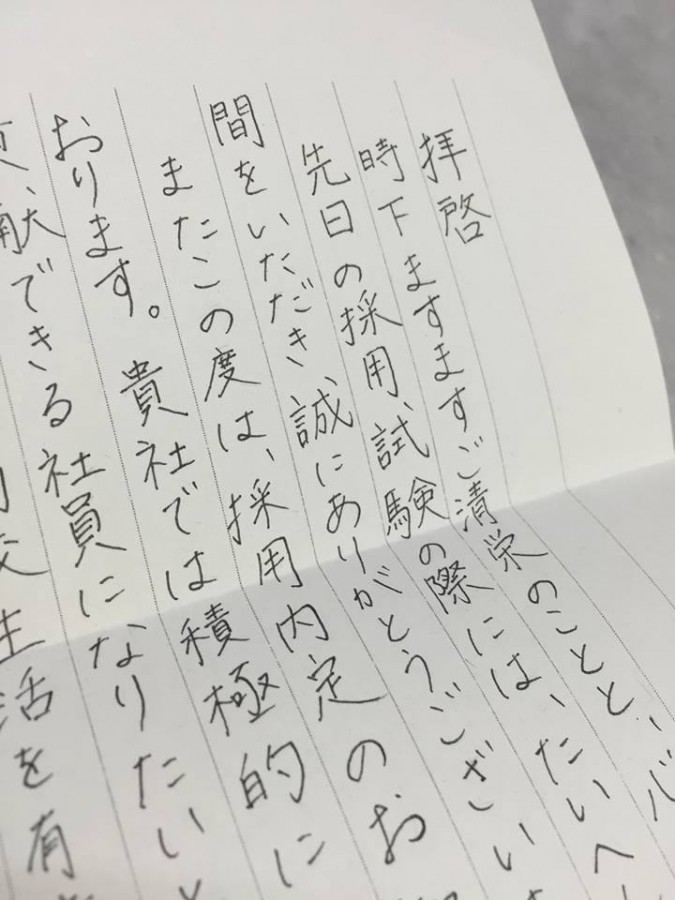 拝啓
時下ますますご清栄のことと、心
先日の採用試験の際には、たいへ
間をいただき、誠にありがとうござい
またこの度は、採用内定のお
おります。貴社では積極的に
献できる社員になりたいと
生活を有